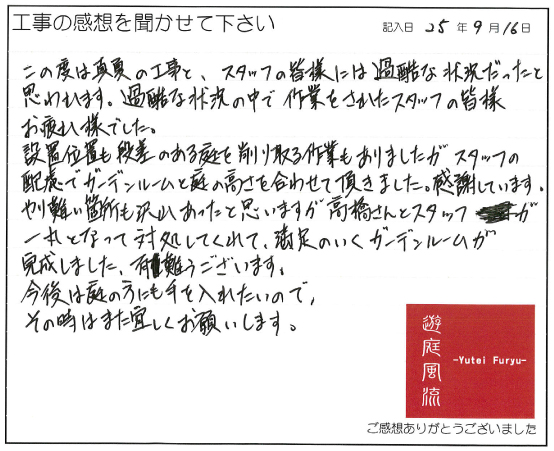 工事の感想を聞かせて下さい
記入日 25年9月16日
この度は真夏の工事と、スタッフの皆様には過酷な状況だったと
思われます。過酷な状況の中で作業をされたスタッフの皆様
お疲れ様でした。
設置位置も段差のある庭を削り取る作業もありましたがスタッフの
配慮でガーデンルームと庭の高さを合わせて頂きました。感謝しています。
やり難い箇所も沢山あったと思いますが高橋さんとスタッフが
一丸となって対処してくれて、満足のいくガーデンルームが
完成しました、有難うございます。
今後は庭の方にも手を入れたいので、
その時はまた宜しくお願いします。
遊庭風流
-Yutei Furyu-
ご感想ありがとうございました